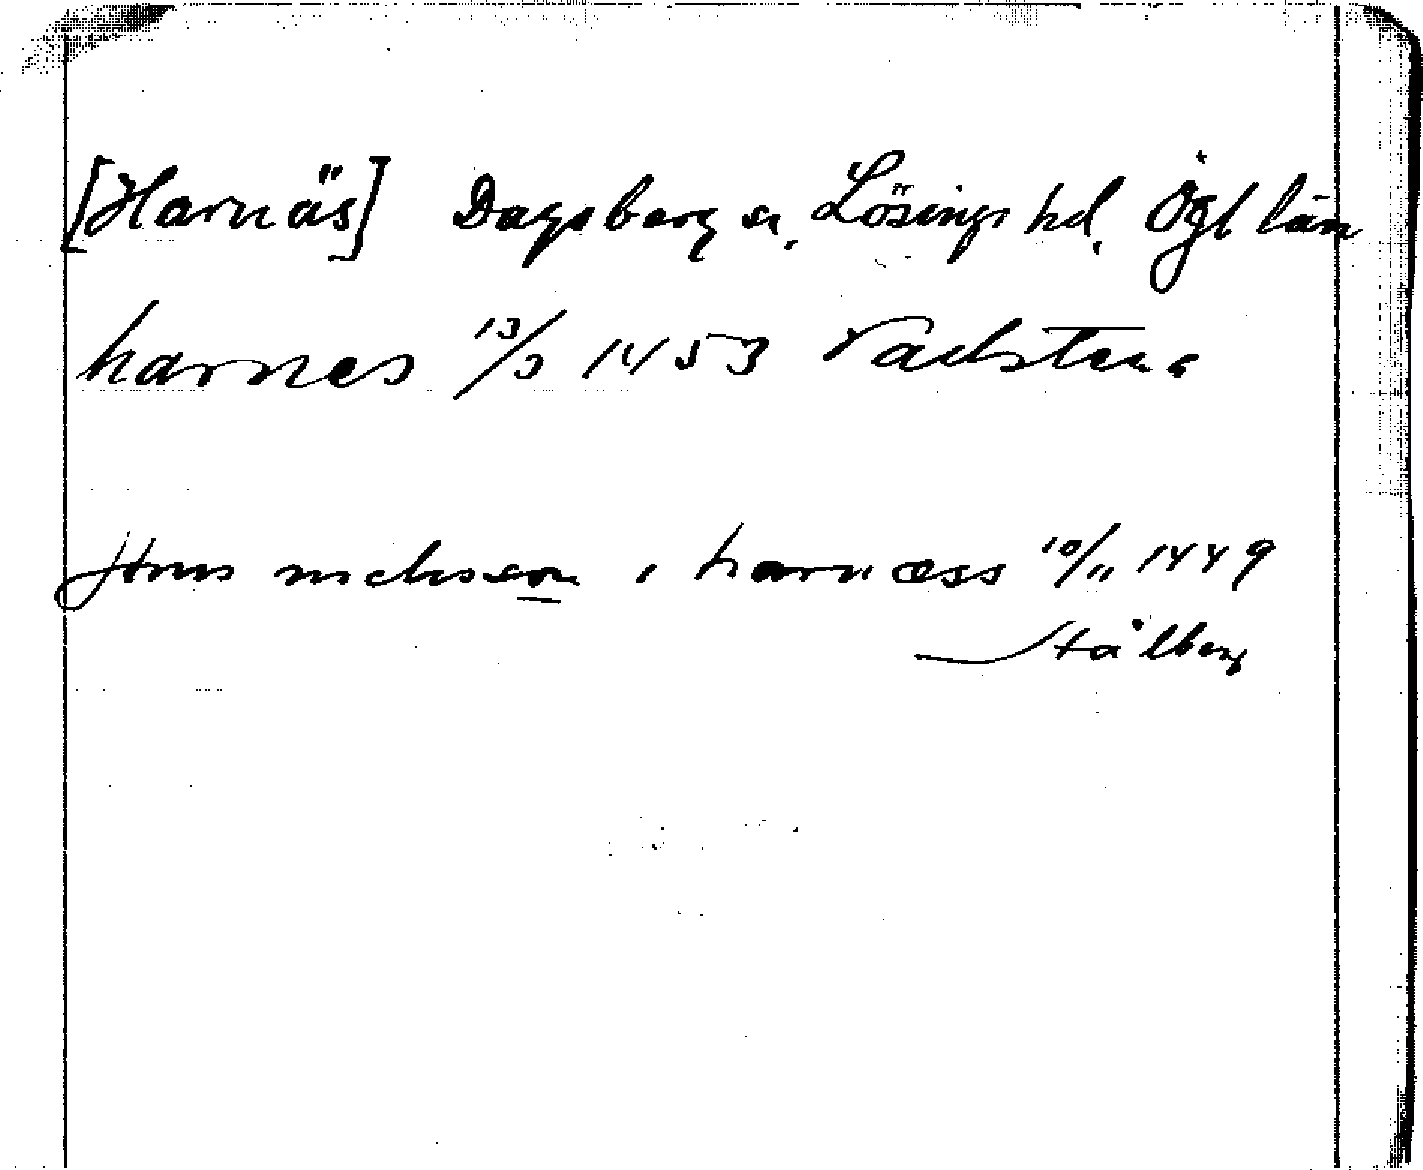 [Harnäs] Dagsberg sn, Lösings hd, Ögl län
harnes 13/3 1453 Vadstena
Jöns niclisson i harnæss 10/11 1449
Stålberg